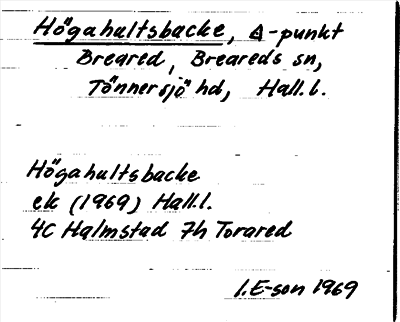 Högahultsbacke, Δ-punkt
Breared, Breareds sn,
Tönnersjö hd, Hall. l.
Högahultsbacke
ek (1969) Hall. l.
4C Halmstad 7h Torared
I. E-son 1969